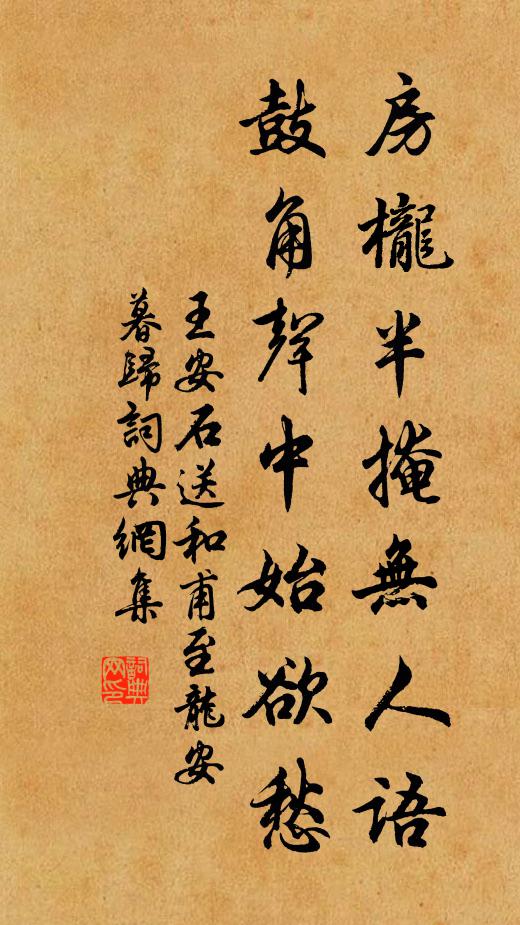 房櫳半掩無人語
鼓角聲中始欲愁
王安石送和甫至龍安
暮歸詞典網集
詞典
网印